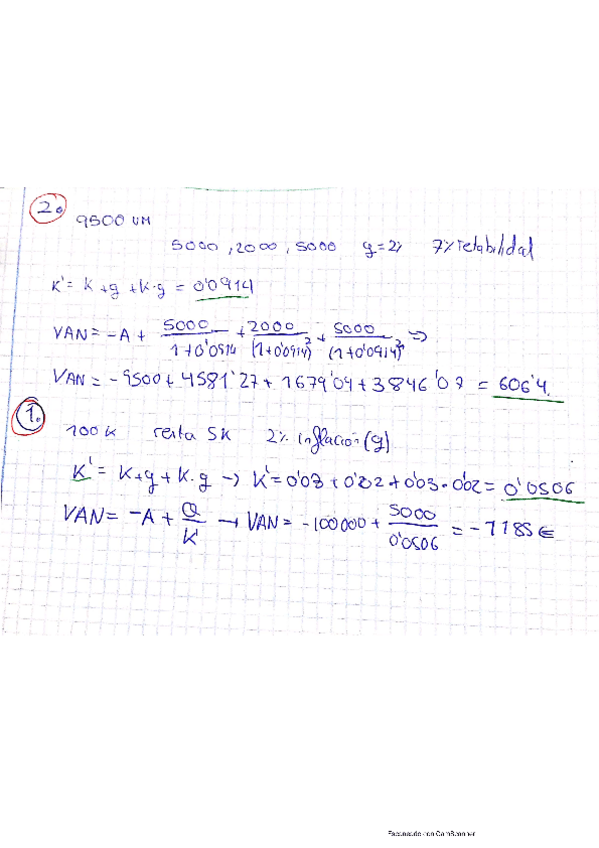 2.
9500 UM
5000, 2000, 5000 g=2% 7% retabilidad
K' = K+g+K·g = 0'0914
VAN = -A + 5000/(1+0'0914) + 2000/(1+0'0914)² + 5000/(1+0'0914)² ⇒
VAN = -9500 + 4581'27 + 1679'04 + 3846'07 = 606'4
1.
100K renta 5K 2% inflación (g)
K' = K+g+K·g → K' = 0'03 + 0'02 + 0'03·0'02 = 0'0506
VAN = -A + Q/K' → VAN = -100000 + 5000/0'0506 = -1185€
Escaneado con CamScanner